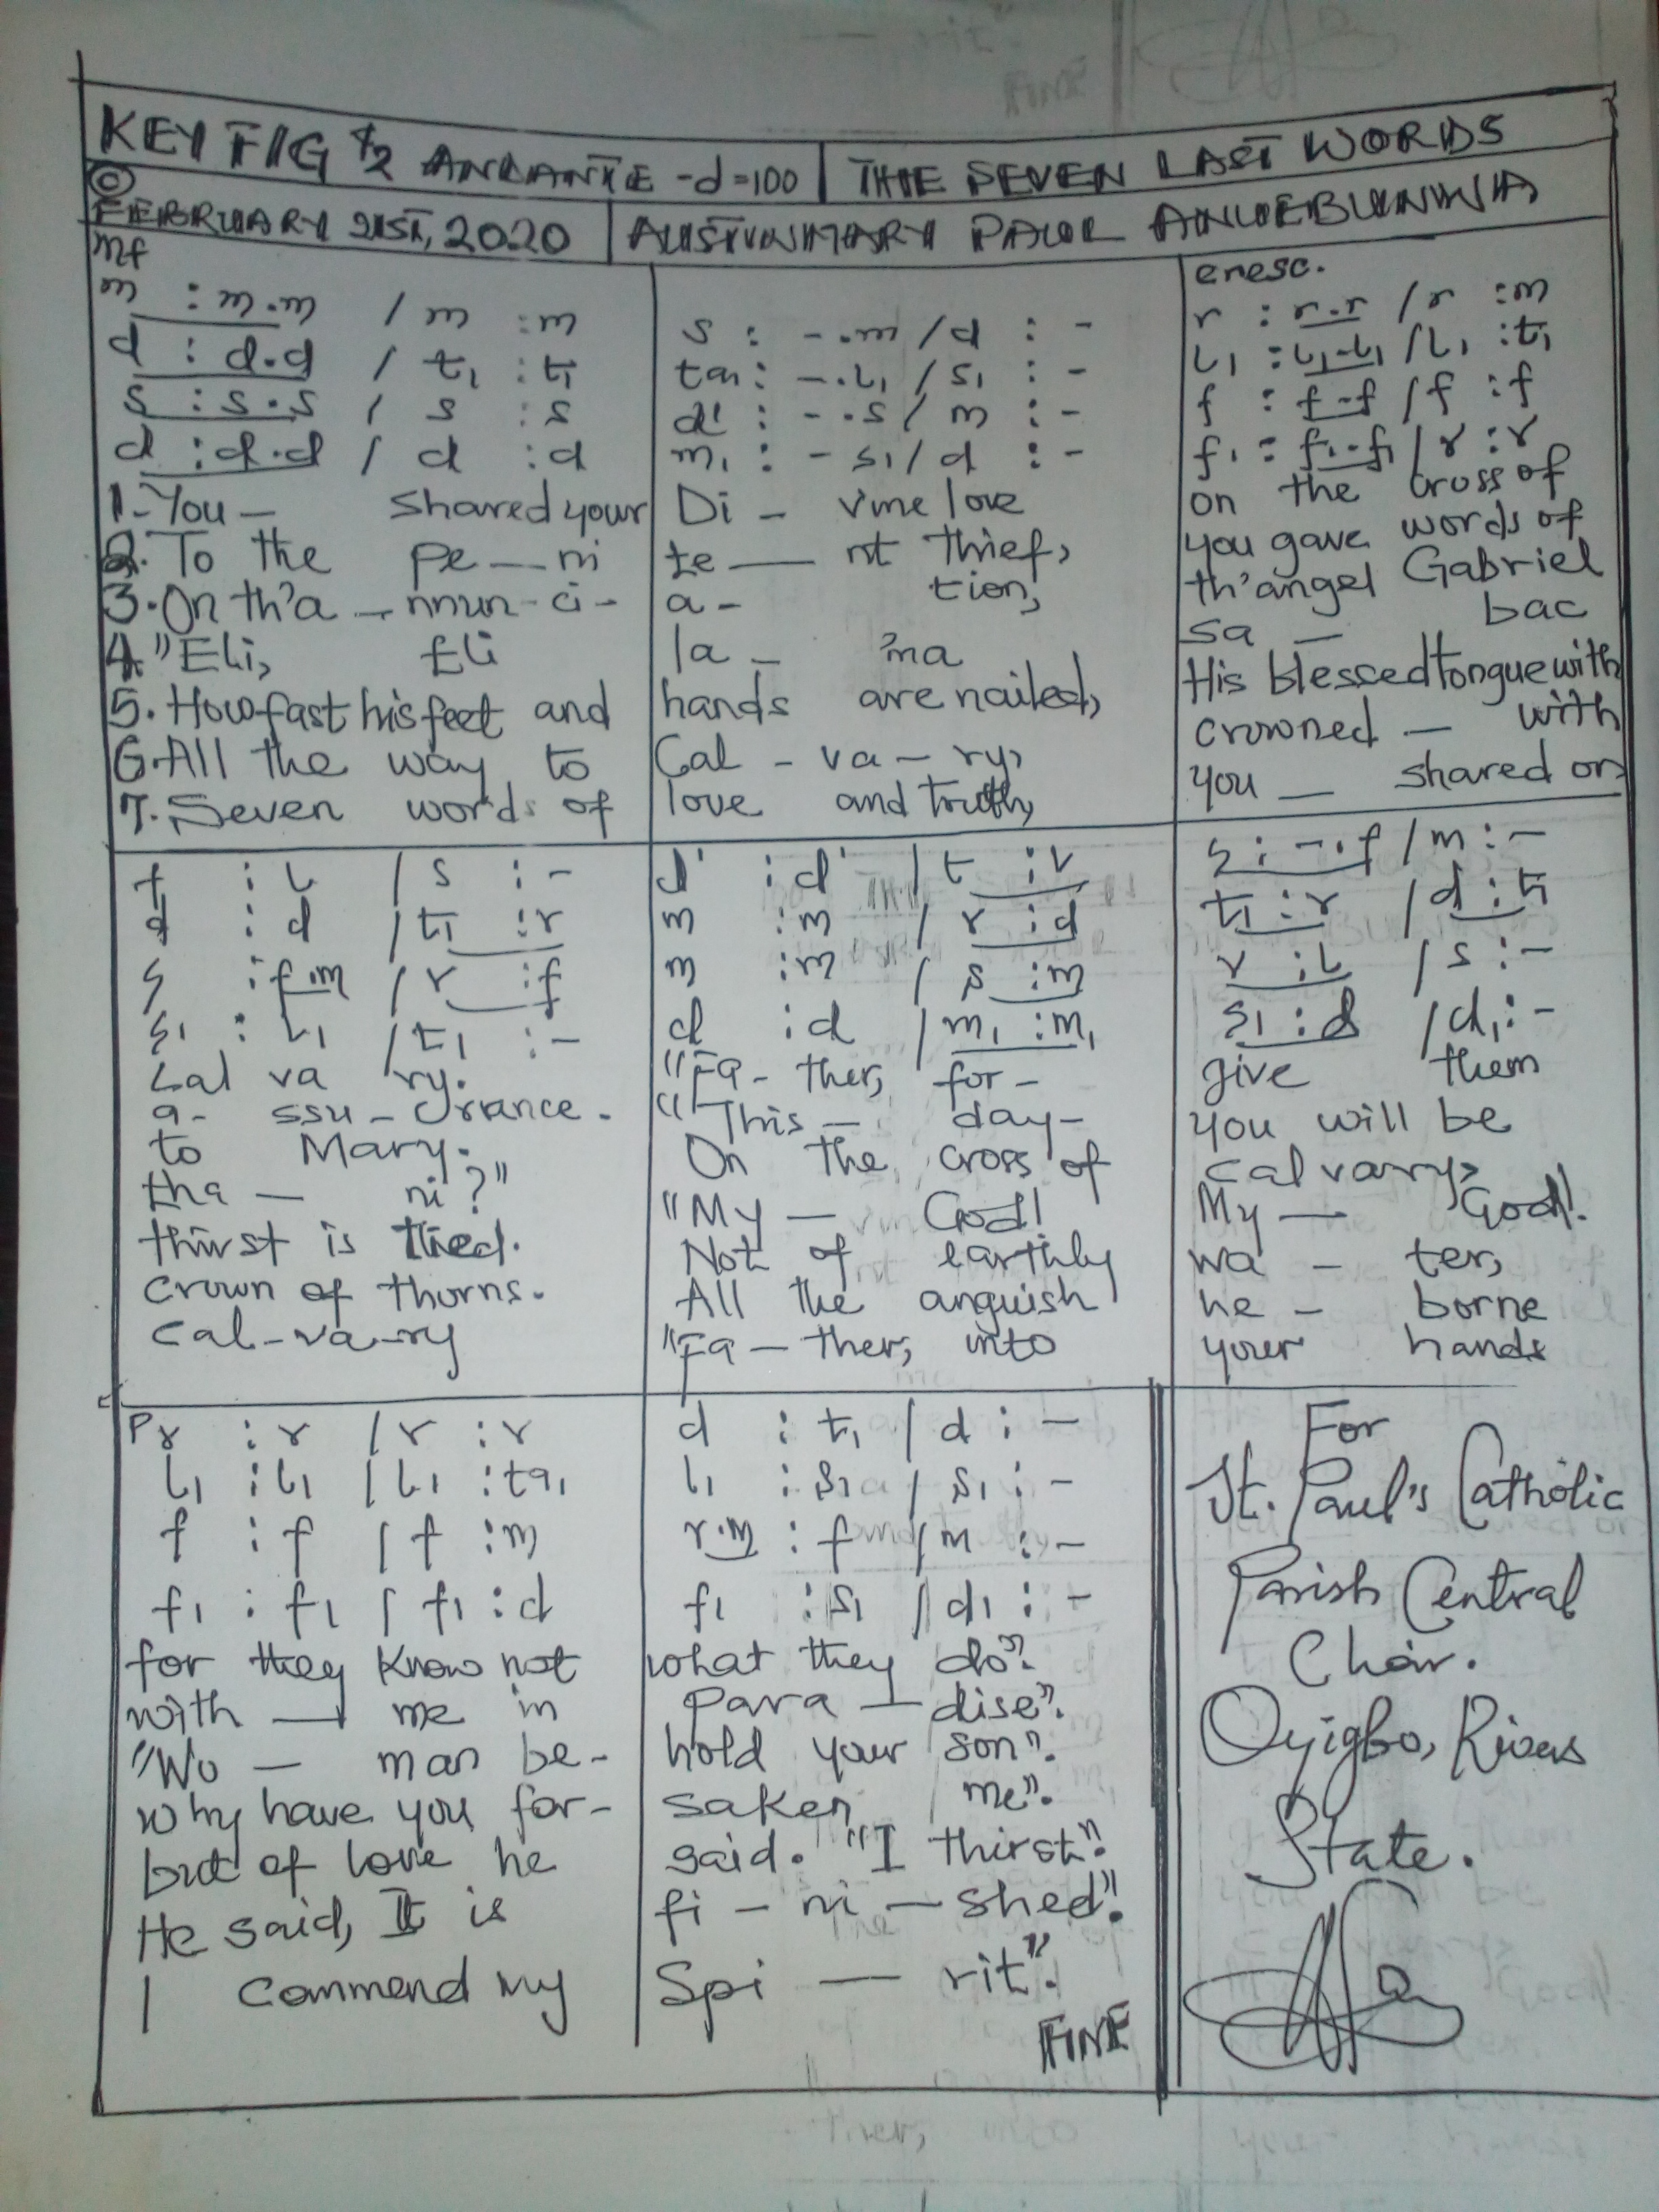 KEY F/G 4/2 ANDANTE -d=100 | THE SEVEN LAST WORDS
© FEBRUARY 21ST, 2020 | AUSTINMARY PAUL ANUEBUNWA
mf
m : m.m / m : m
d : d.d / t₁ : t₁
s : s.s / s : s
d : d.d / d : d
1-You - shared your
2. To the pe — ni
3. On th'a - nnun-ci-
4."Eli, Eli
5. How fast his feet and
6. All the way to
7. Seven words of
s : -.m / d : -
ta₁ : -.l₁ / s₁ : -
d' : -.s / m : -
m₁ : - s₁ / d : -
Di - vine love
te — nt thief,
a - tion,
la - ma
hands are nailed,
Cal - va - ry,
love and truth,
cresc.
r : r.r / r : m
l₁ : l₁-l₁ / l₁ : t₁
f : f-f / f : f
f₁ : f₁-f₁ / r : r
on the cross of
you gave words of
th'angel Gabriel
sa - bac
His blessed tongue with
crowned - with
you - shared on
f : l / s : -
d : d / t₁ : r
s : f.m / r : f
s₁ : l₁ / t₁ : -
Cal va ry.
a- ssu - rance.
to Mary.
tha - ni?"
thirst is tied.
crown of thorns.
cal-va-ry
d' : d' / t : l
m : m / r : d
m : m / s : m
d : d / m₁ : m₁
"Fa - ther, for -
"This - day -
On the cross of
"My - God!
Not of earthly
All the anguish
"Fa - ther, into
s : -.f / m : -
t₁ : r / d : t₁
r : l / s : -
s₁ : d / d₁ : -
give them
you will be
cal vary,
My - God!.
wa - ter,
he - borne
your hands
P r : r / r : r
l₁ : l₁ / l₁ : ta₁
f : f / f : m
f₁ : f₁ / f₁ : d
for they know not
with — me in
"Wo - man be-
why have you for-
but of love he
He said, It is
I commend my
d : t₁ / d : -
l₁ : s₁ / s₁ : -
r.m : f / m : -
f₁ : s₁ / d₁ : -
what they do".
para - dise".
hold your son".
saken me".
said. "I thirst".
fi - ni - shed".
Spi — rit".
FINE
For
St. Paul's Catholic
Parish Central
Choir.
Oyigbo, Rivers
State.